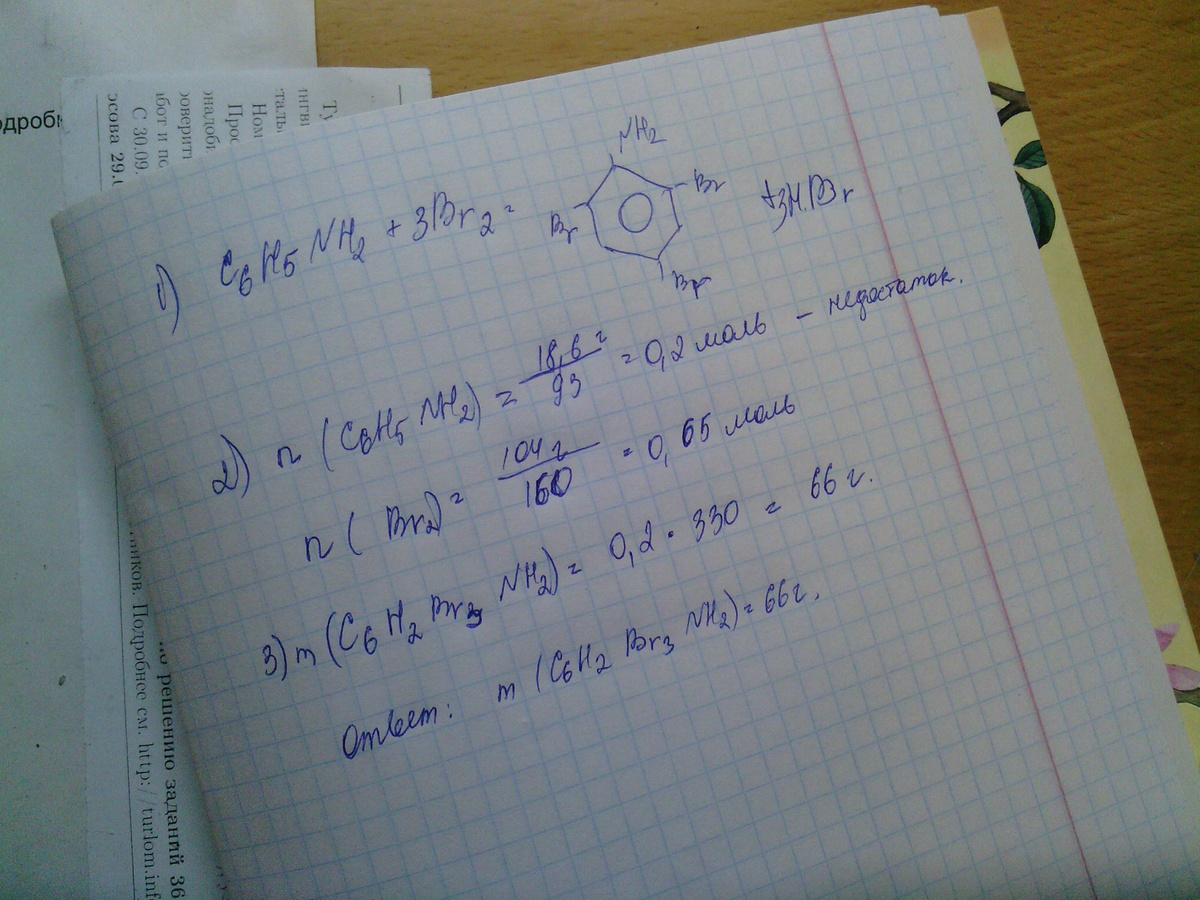 одробн
Ту
нгви
тальн
Ном
Прос
онадоби
роверити
бот и по
С 30.09.
осова 29.0
1) C6H5NH2 + 3Br2 =
NH2
Br
Br
Br
+3HBr
2) n (C6H5NH2) = 18,6 г / 93 = 0,2 моль – недостаток.
n (Br2) = 104 г / 160 = 0,65 моль
3) m (C6H2Br3NH2) = 0,2 · 330 = 66 г.
Ответ: m (C6H2Br3NH2) = 66 г.
ников. Подробнее см. http://turlom.inf
по решению заданий 36